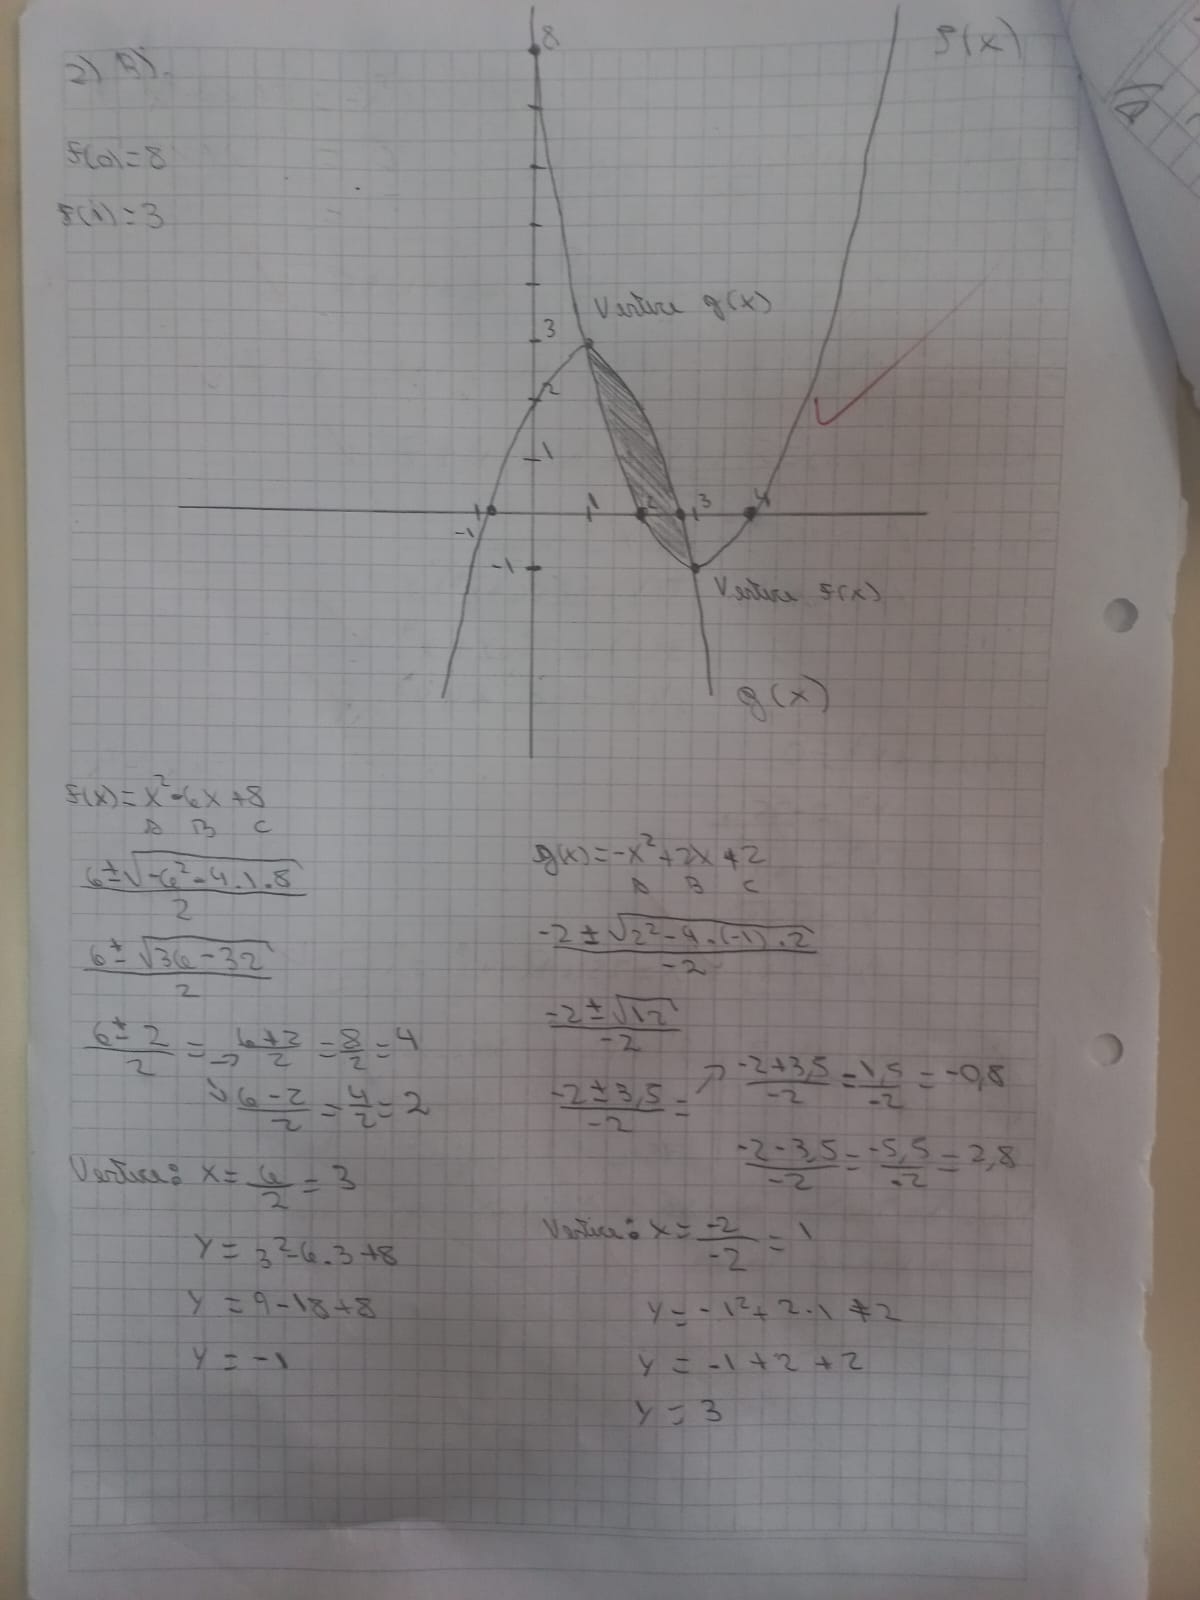 2) B).
8
f(x)
f(0)=8
f(1)=3
Vertice g(x)
3
2
1
-1
1
2
3
4
-1
Vertice f(x)
g(x)
f(x)=x²-6x+8
A B C
6±√-6²-4.1.8
2
6±√36-32
2
6±2/2 = → 6+2/2 = 8/2 = 4
↘ 6-2/2 = 4/2 = 2
Vertice: x = 6/2 = 3
y = 3²-6.3+8
y = 9-18+8
y = -1
g(x)=-x²+2x+2
A B C
-2±√2²-4.(-1).2
-2
-2±√12
-2
-2±3,5/-2 = ↗ -2+3,5/-2 = 1,5/-2 = -0,8
-2-3,5/-2 = -5,5/-2 = 2,8
Vertice: x = -2/-2 = 1
y = -1²+2.1+2
y = -1+2+2
y = 3